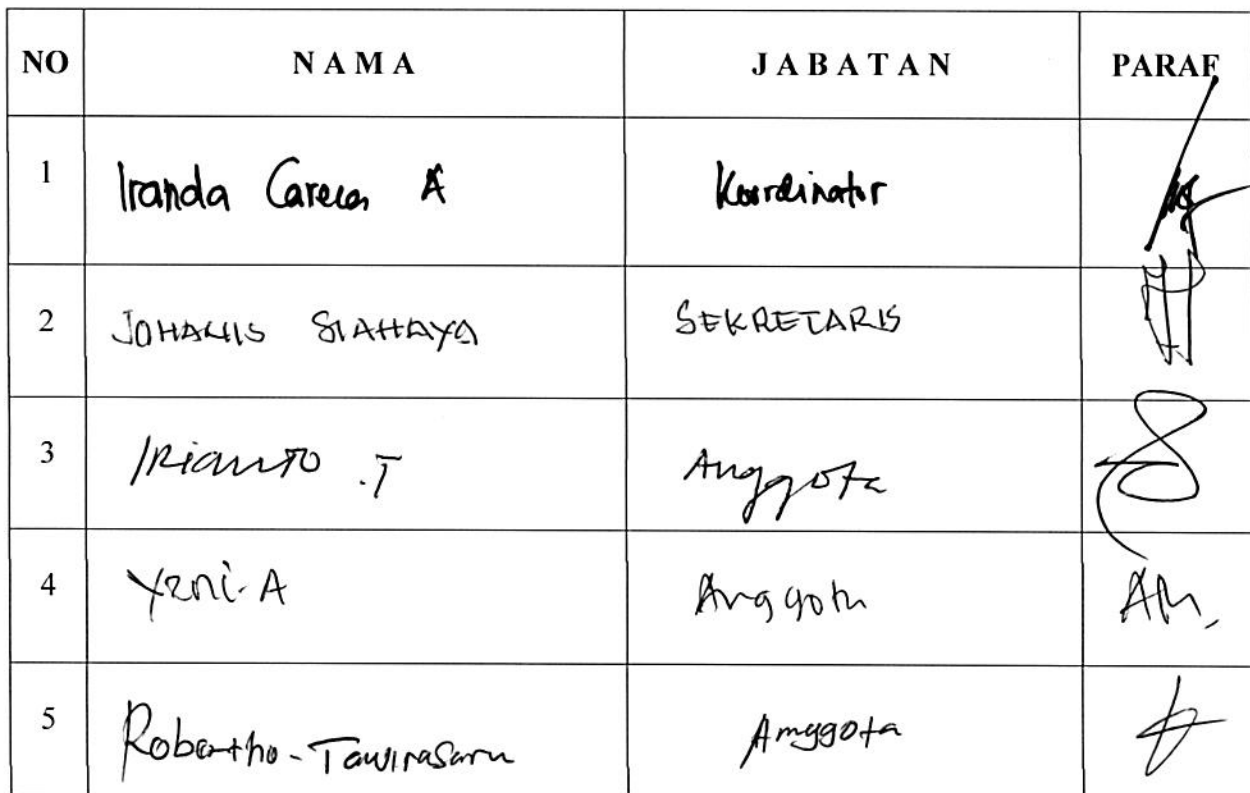 NO NAMA JABATAN PARAF
1 Iranda Careca A Koordinator
2 JOHANIS SIAHAYA SEKRETARIS
3 IRianto .T Anggota
4 Yeni. A Anggota
5 Robertho - Tawirasaru Anggota